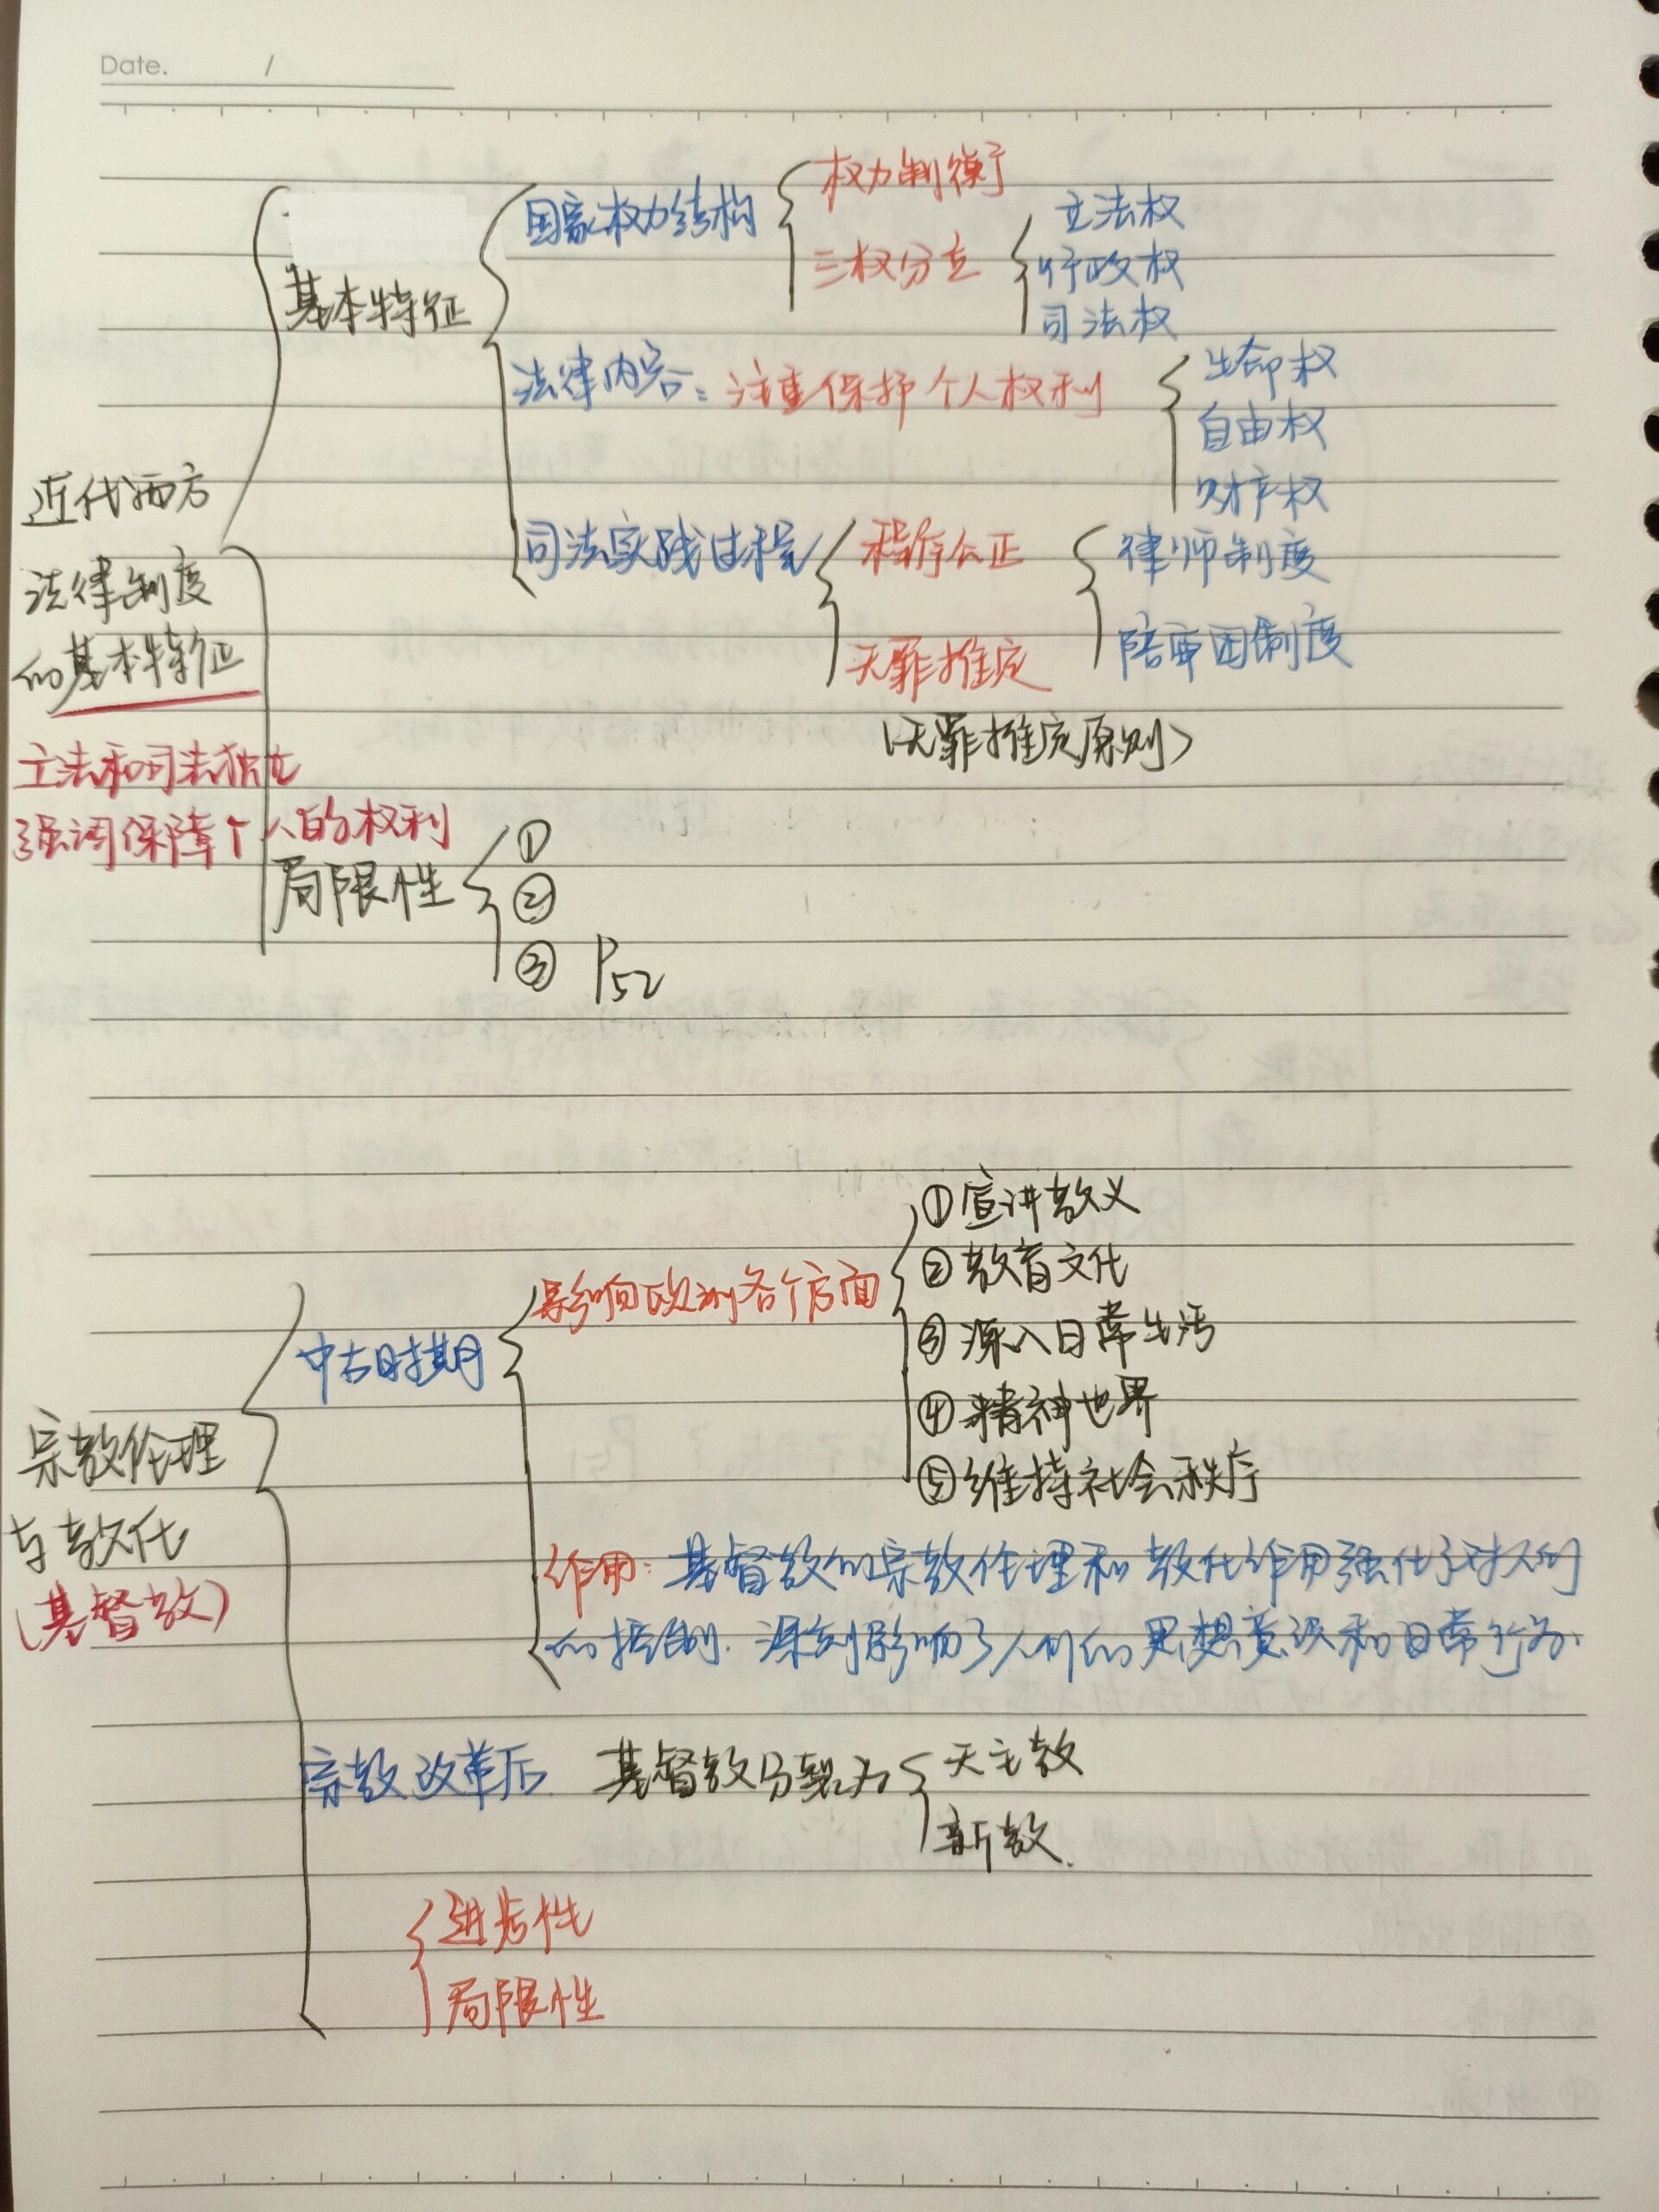 Date. /
权力制衡
国家权力结构
立法权
三权分立
行政权
基本特征
司法权
生命权
法律内容：注重保护个人权利
自由权
近代西方
财产权
司法实践过程
程序公正
律师制度
法律制度
陪审团制度
的基本特征
无罪推定
(无罪推定原则)
立法和司法独立
强调保障个人的权利
①
局限性
②
③ P52
①宣讲教义
②教育文化
影响欧洲各个方面
③深入日常生活
中古时期
④精神世界
宗教伦理
⑤维持社会秩序
与教化
作用：基督教的宗教伦理和教化作用强化了对人们
(基督教)
的控制.深刻影响了人们的思想意识和日常行为.
天主教
宗教改革后 基督教分裂为
新教.
进步性
局限性